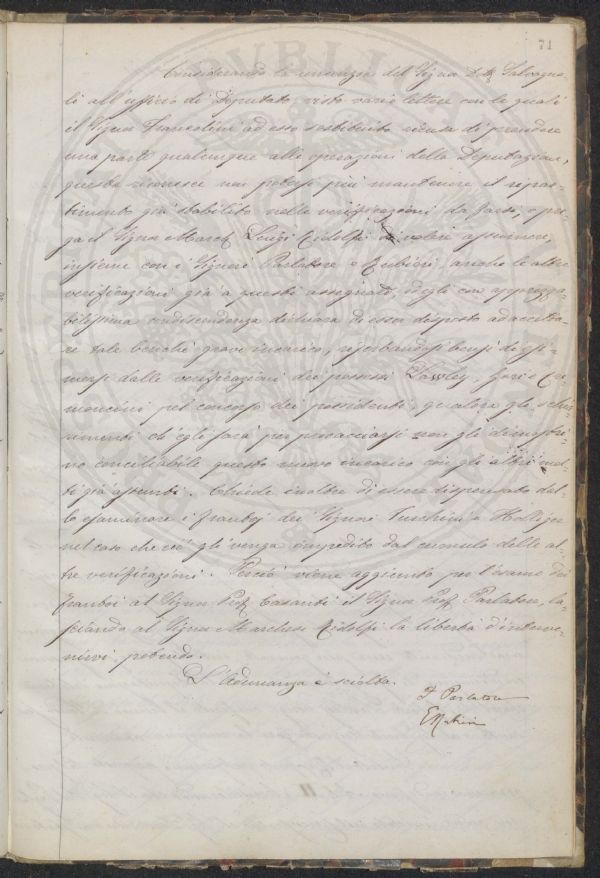 71
Considerando la rinunzia del Signor Dr. Salvagno-
li all'uffizio di Deputato, visto varie lettere con le quali
il Signor Francolini ad esso sostituito ricusa di prendere
una parte qualunque alle operazioni della Deputazione,
questa riconosce non potersi più mantenere il repar-
timento già stabilito nelle verificazioni da farsi, e pre-
ga il Signor March. Luigi Ridolfi di volere assumere,
insieme con i Signori Parlatore e Rubieri, anche le altre
verificazioni già a questi assegnate, ed egli con apprezza-
bilissima condiscendenza dichiara di esser disposto ad accetta-
re tale benché grave incarico, riserbandosi bensì di esi-
mersi dalle verificazioni dei possessi Sawley, Gori e
pel concorso dei possidenti, qualora gli schia-
rimenti ch'egli farà per procacciarsi non gli dimostri-
no conciliabile questo nuovo incarico con gli altri mol-
ti già assunti. Chiede inoltre di essere dispensato dal-
lo esaminare i frantoj dei Signori Turchini e
nel caso che ciò gli venga impedito dal cumulo delle al-
tre verificazioni. Perciò viene aggiunto per l'esame dei
frantoi al Signor Prof. Casanti il Signor Prof. Parlatore, la-
sciando al Signor Marchese Ridolfi la libertà d'interve-
nirvi potendo.
L'Adunanza è sciolta.
F Parlatore
E Rubieri